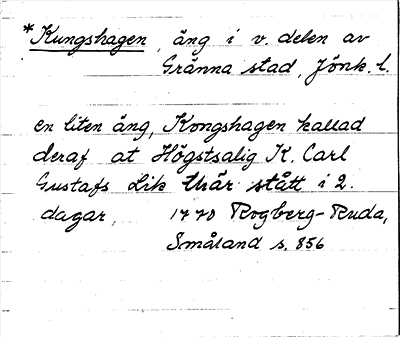 *Kungshagen, äng i v. delen av
Gränna stad, Jönk. l.
en liten äng, Kongshagen kallad
deraf at Högstsalig K. Carl
Gustafs Lik thär stått i 2.
dagar, 1770 Rogberg-Ruda,
Småland s. 856